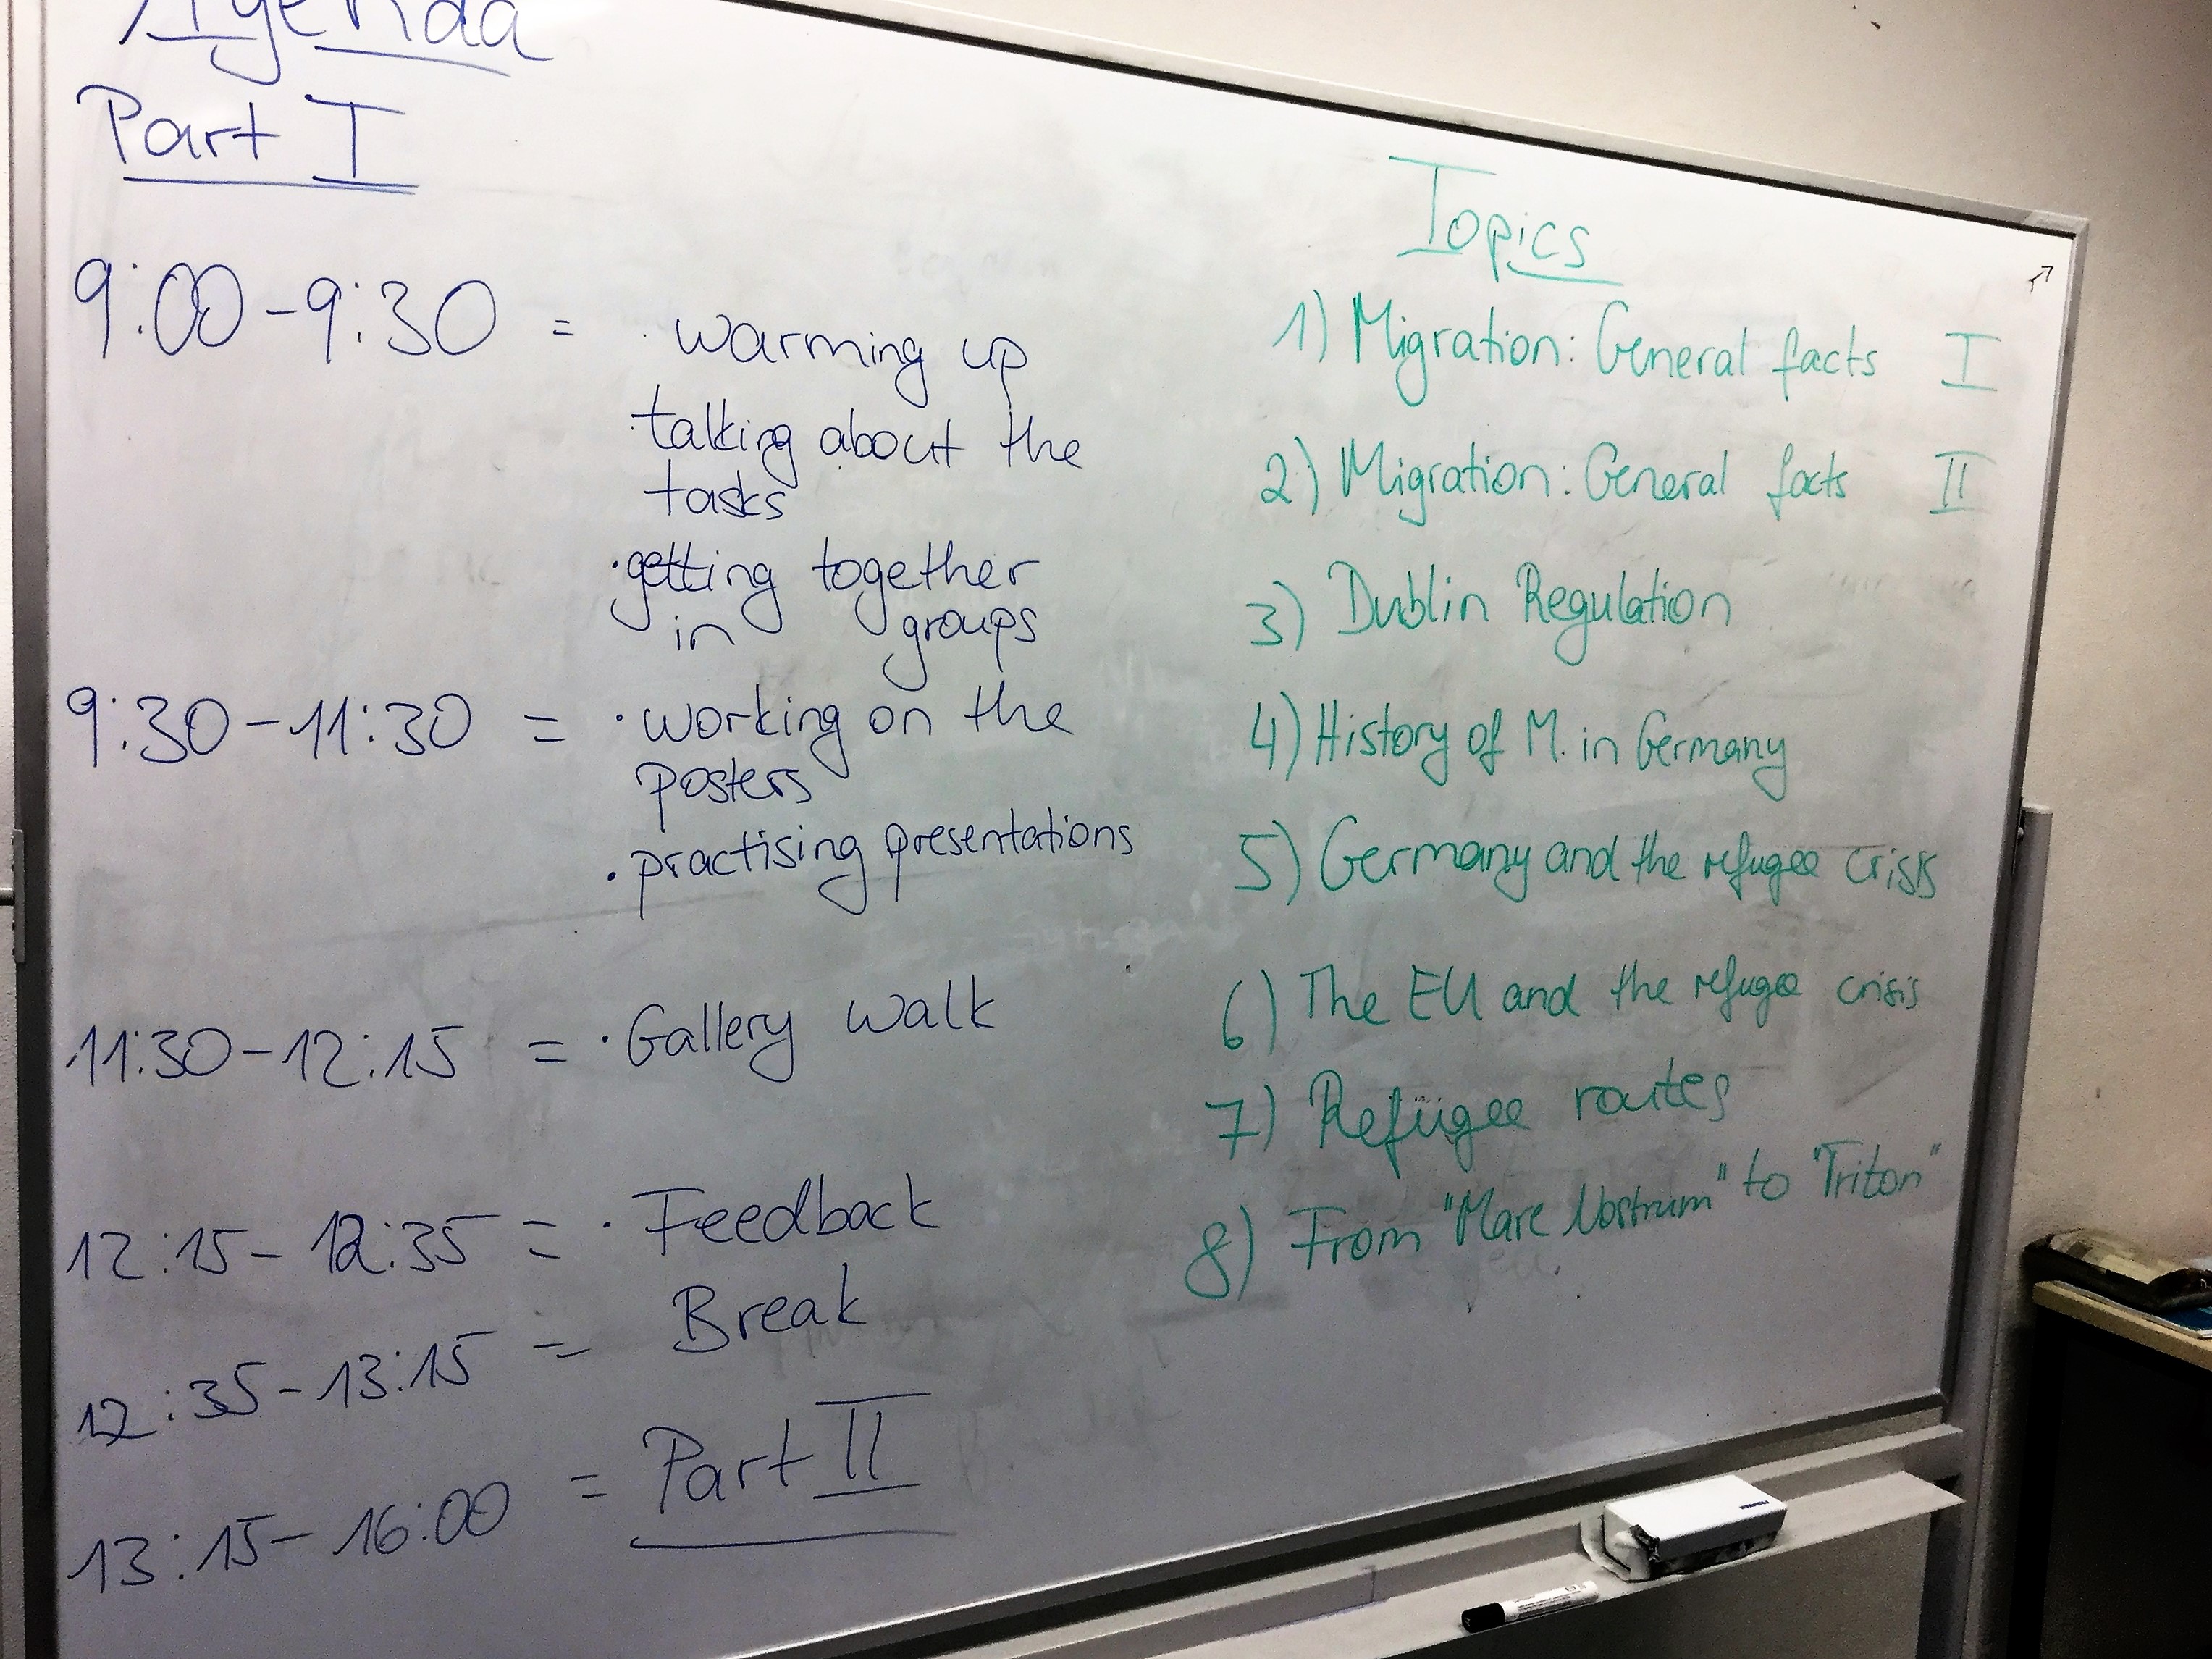 Agenda
Part I
9:00-9:30 = · warming up
· talking about the
tasks
· getting together
in groups
9:30-11:30 = · working on the
posters
· practising presentations
11:30-12:15 = · Gallery walk
12:15-12:35 = · Feedback
12:35-13:15 = Break
13:15-16:00 = Part II
Topics
1) Migration: General facts I
2) Migration: General facts II
3) Dublin Regulation
4) History of M. in Germany
5) Germany and the refugee crisis
6) The EU and the refugee crisis
7) Refugee routes
8) From "Mare Nostrum" to "Triton"